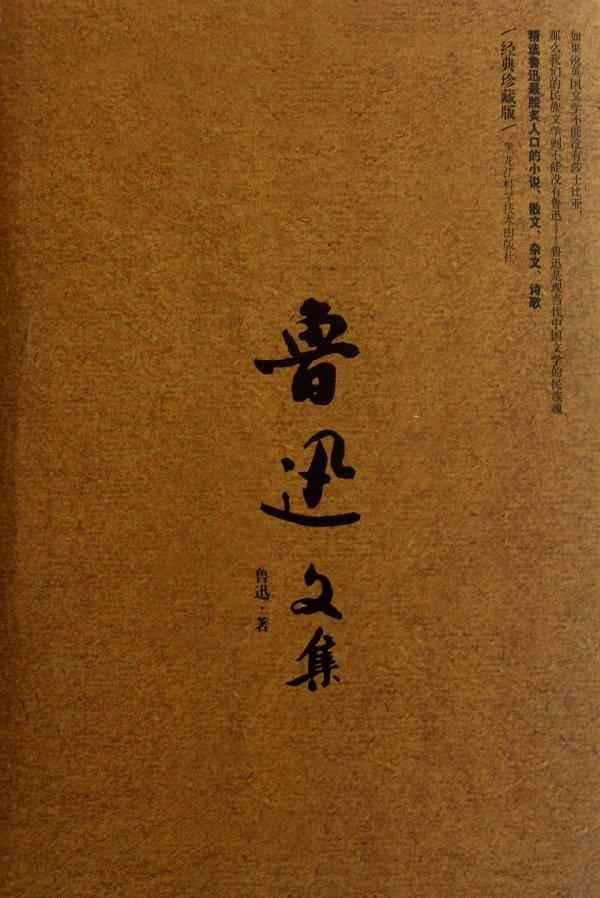 如果说英国文学不能没有莎士比亚，
那么我们的民族文学则不能没有鲁迅——鲁迅是现当代中国文学的民族魂
精选鲁迅最脍炙人口的小说、散文、杂文、诗歌
/经典珍藏版/
黑龙江科学技术出版社
鲁迅文集
鲁迅·著